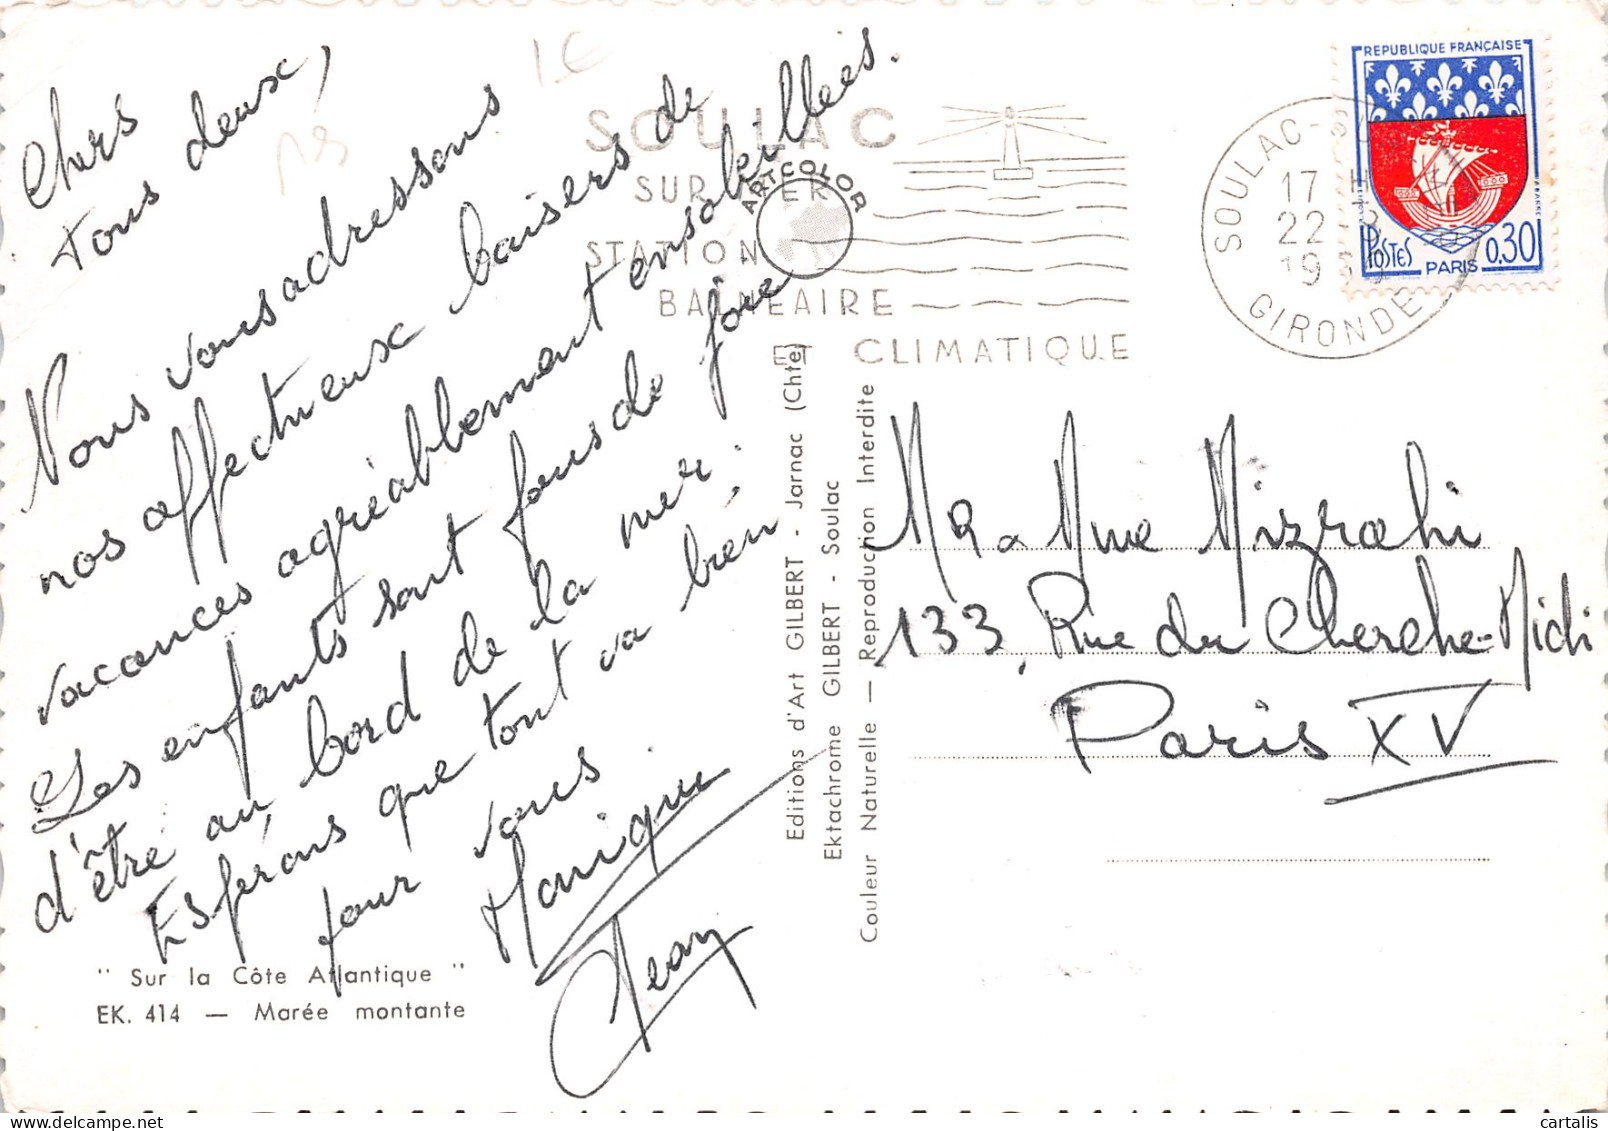 Chers
tous deux,
Nous vous adressons
nos affectueux baisers de
vacances agréablement ensoleillées.
Les enfants sont fous de joie
d'être au bord de la mer.
Espérons que tout va bien
pour vous
Monique
Jean
" Sur la Côte Atlantique "
EK. 414 — Marée montante
Editions d'Art GILBERT - Jarnac (Chte)
Ektachrome GILBERT - Soulac
Couleur Naturelle — Reproduction Interdite
ARTCOLOR
SOULAC
SUR MER
STATION
BALNEAIRE
ET CLIMATIQUE
SOULAC-
17 H
22 - 8
19
GIRONDE
REPUBLIQUE FRANÇAISE
POSTES
PARIS
0,30
Mr & Mme Mizrahi
133, Rue du Cherche-Midi
Paris XV
cartalis